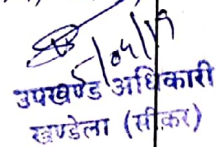 /04/19
उपखण्ड अधिकारी
खण्डेला (सीकर)